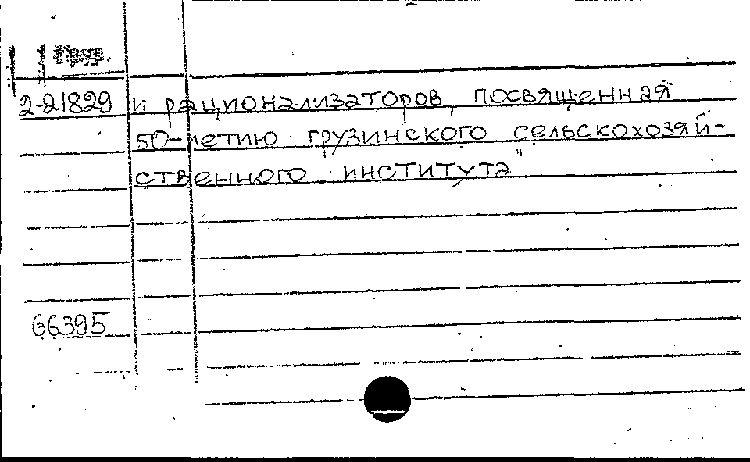 2-21829 и рационализаторов, посвященная
50-летию грузинского сельскохозяй-
ственного института"
66395